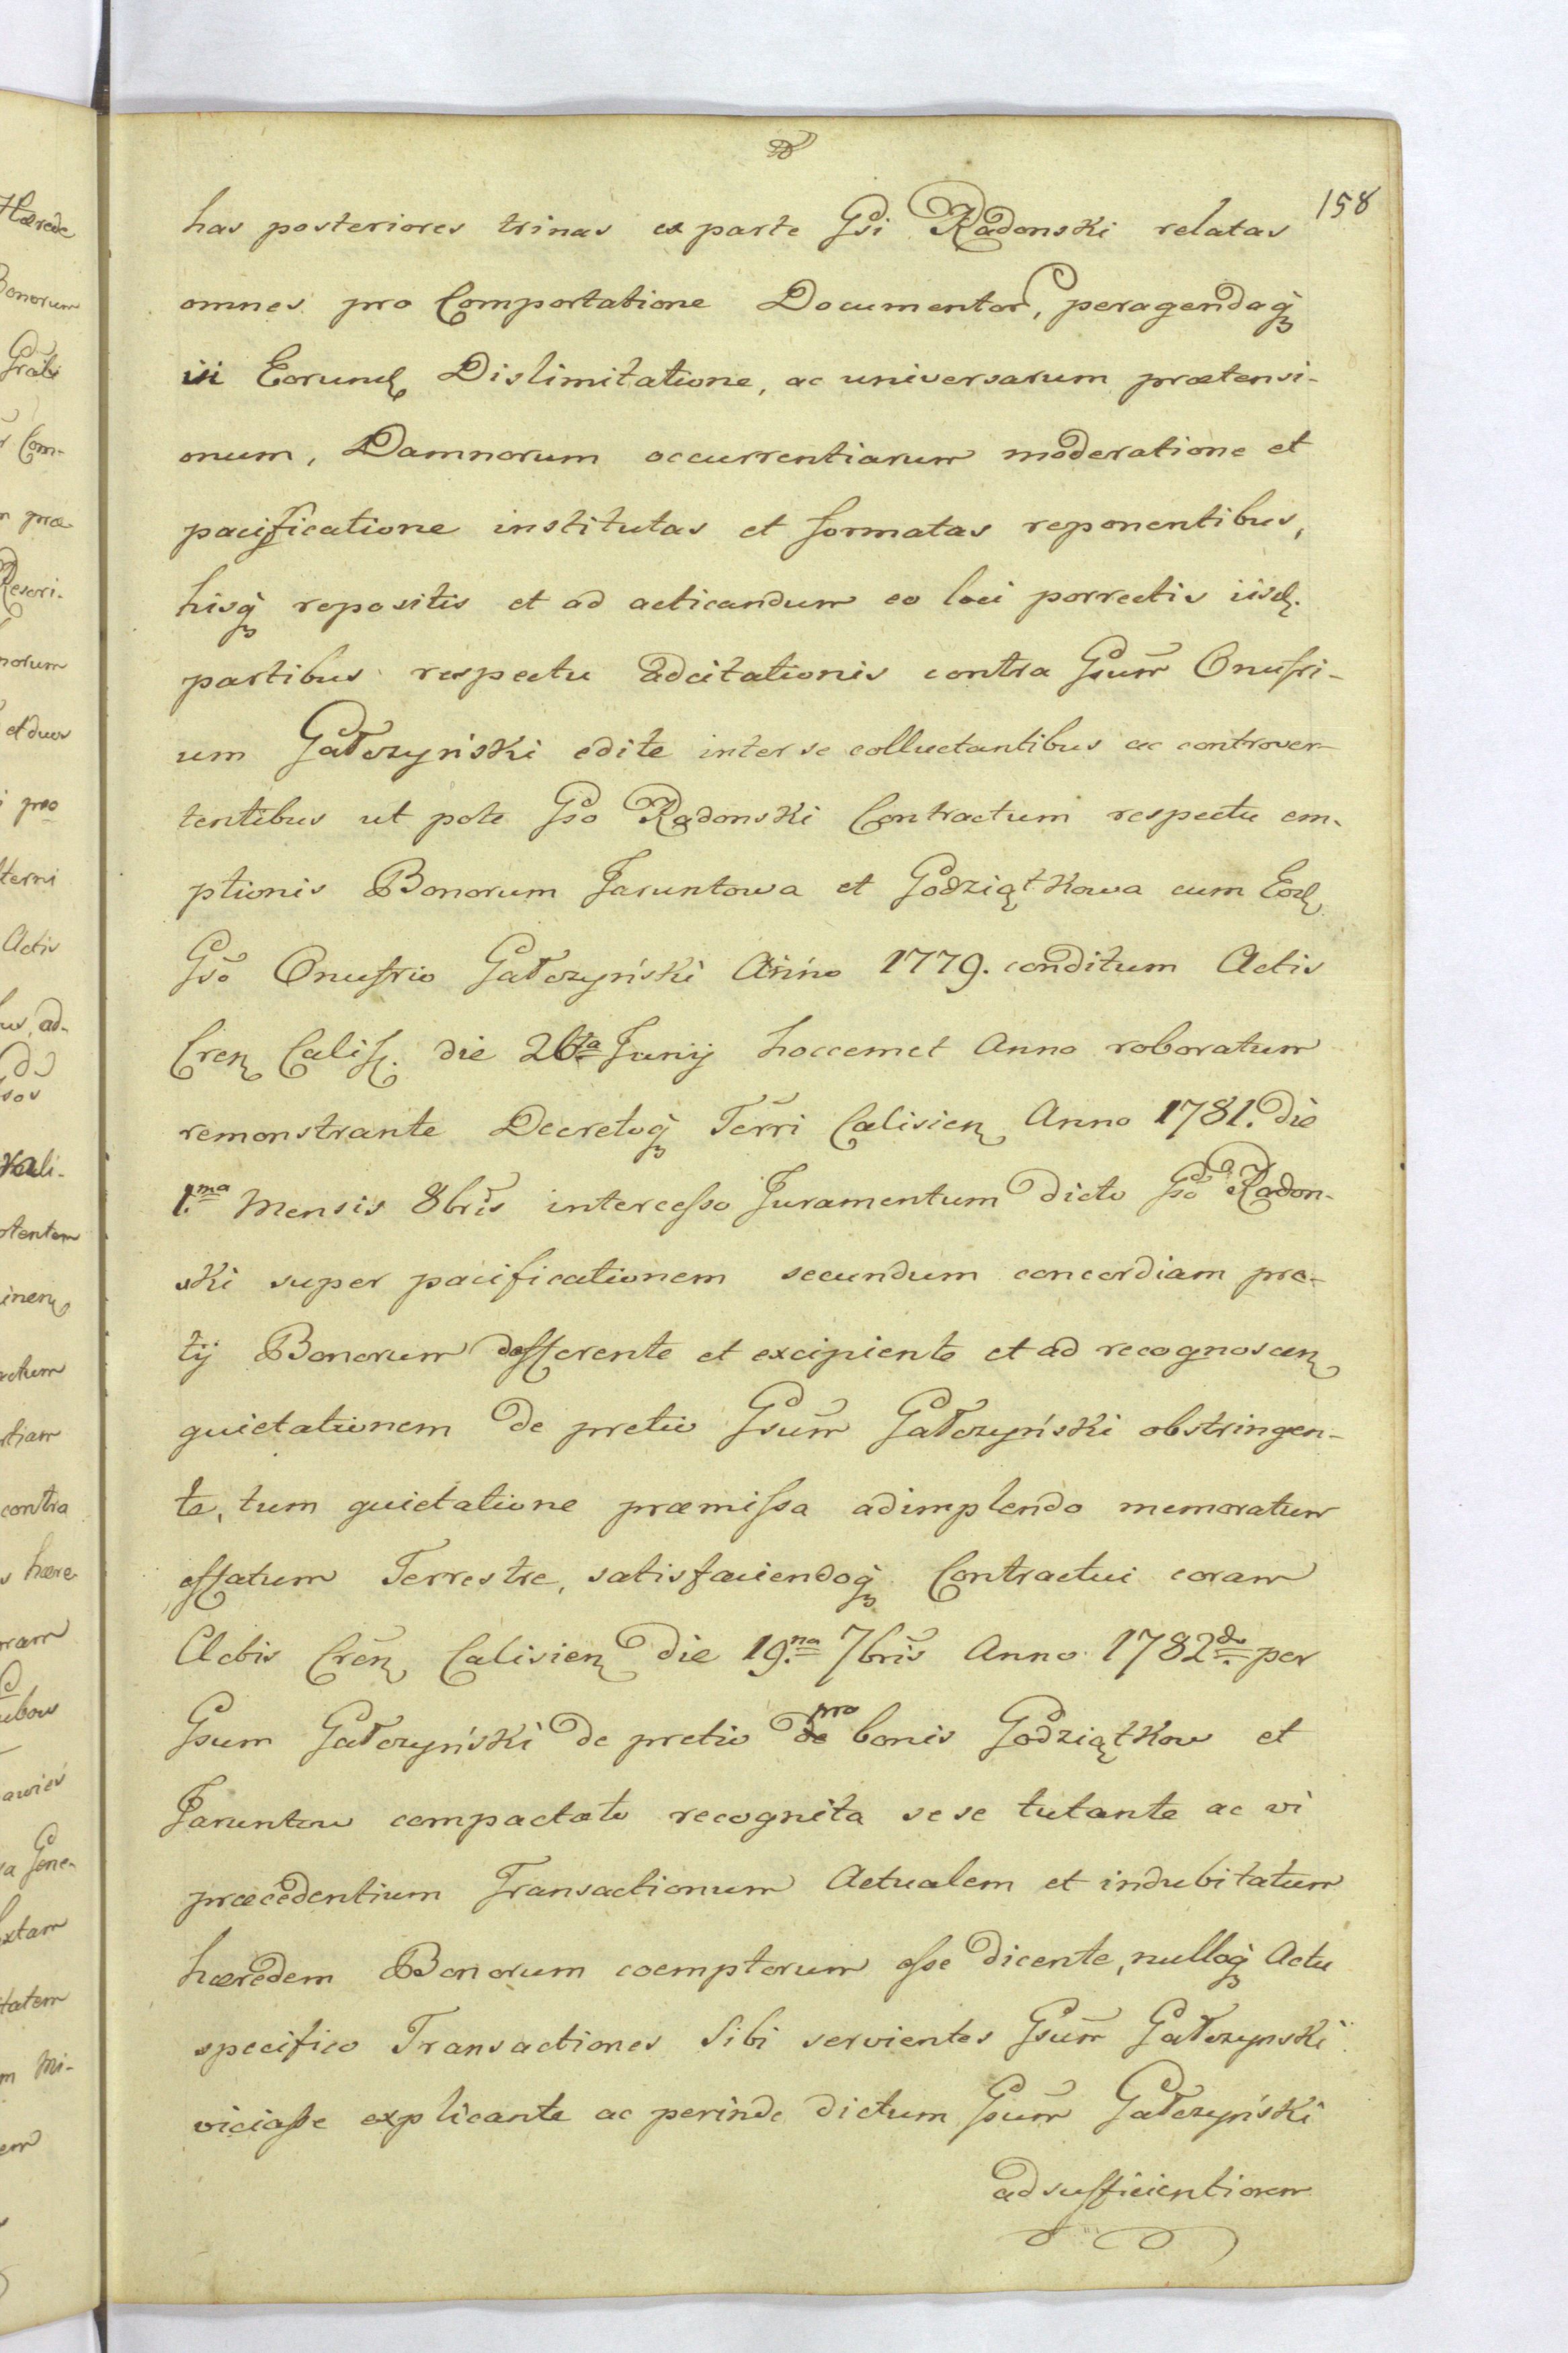 158
has posteriores trinas ex parte Gsi Radonski relatas
omnes pro Comportatione Documentor, peragendaq
iis Eorund Dislimitatione, ac universarum prætensi-
onum, Damnorum occurrentiarum moderatione et
pacificatione institutas et formatas reponentibus,
hisq repositis et ad acticandum eo loci porrectis iisd.
partibus respectu adcitationis contra Gsum Onufri-
um Gałczyński edite inter se colluctantibus ac controver-
tentibus ut pote Gso Radonski Contractum respectu em-
ptionis Bonorum Jaruntowa et Godziątkowa cum Eod
Gso Onufrio Gałczyński Anno 1779. conditum Actis
Cren Calis. die 26ta Junij hoccemet Anno roboratum
remonstrante Decretoq Terri Calisien Anno 1781. die
1.ma Mensis 8bris intercesso Juramentum dicto Gso Radon-
ski super pacificationem secundum concordiam pre-
tij Bonorum defferente et excipiente et ad recognoscen
quietationem de pretio Gsum Gałczyński obstringen-
te, tum quietatione præmissa adimplendo memoratum
effatum Terrestre, satisfaciendoq Contractui coram
Actis Cren Calisien die 19.na 7bris Anno 1782do. per
Gsum Gałczyński de pretio de pro bonis Godziątkow et
Jaruntow compactato recognita sese tutante ac vi
præcedentium Transactionum Actualem et indubitatum
hæredem Bonorum coemptorum esse dicente, nulloq Actu
specifico Transactiones Sibi servientes Gsum Gałczynski
viciasse explicante ac perinde dictum Gsum Gałczyński
ad sufficientiorem